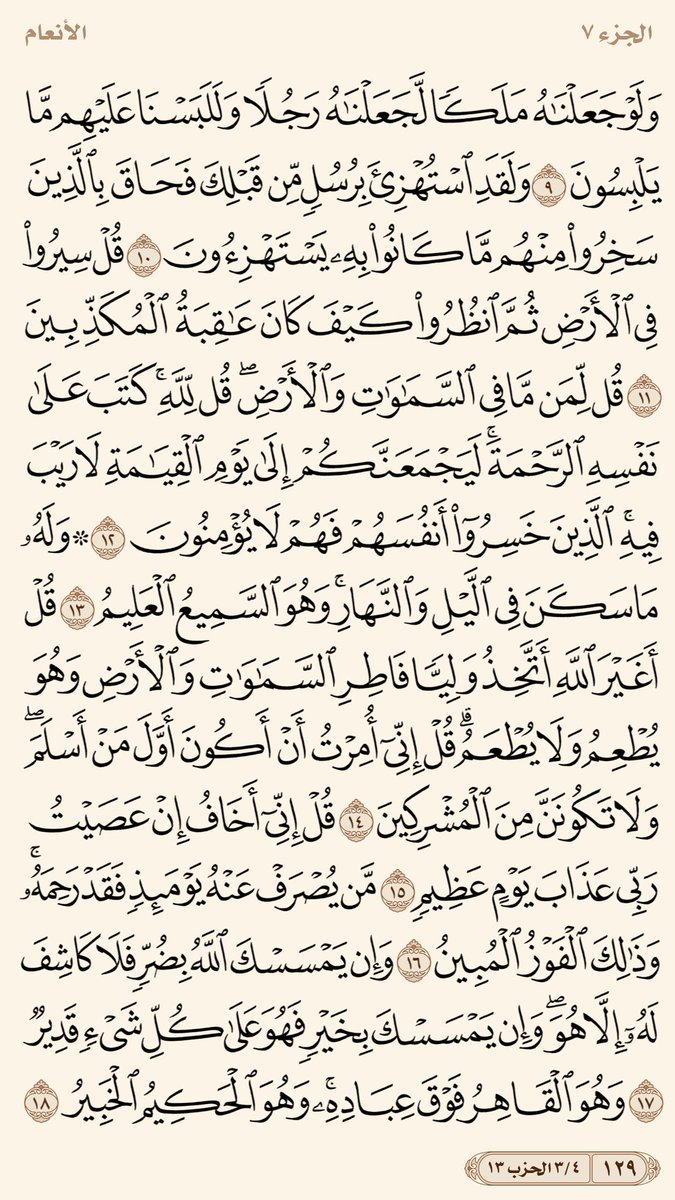 الجزء ٧
الأنعام
وَلَوْ جَعَلْنَٰهُ مَلَكًا لَّجَعَلْنَٰهُ رَجُلًا وَلَلَبَسْنَا عَلَيْهِم مَّا
يَلْبِسُونَ ٩ وَلَقَدِ ٱسْتُهْزِئَ بِرُسُلٍ مِّن قَبْلِكَ فَحَاقَ بِٱلَّذِينَ
سَخِرُوا۟ مِنْهُم مَّا كَانُوا۟ بِهِۦ يَسْتَهْزِءُونَ ١٠ قُلْ سِيرُوا۟
فِى ٱلْأَرْضِ ثُمَّ ٱنظُرُوا۟ كَيْفَ كَانَ عَٰقِبَةُ ٱلْمُكَذِّبِينَ
١١ قُل لِّمَن مَّا فِى ٱلسَّمَٰوَٰتِ وَٱلْأَرْضِ ۖ قُل لِّلَّهِ ۚ كَتَبَ عَلَىٰ
نَفْسِهِ ٱلرَّحْمَةَ ۚ لَيَجْمَعَنَّكُمْ إِلَىٰ يَوْمِ ٱلْقِيَٰمَةِ لَا رَيْبَ
فِيهِ ۚ ٱلَّذِينَ خَسِرُوٓا۟ أَنفُسَهُمْ فَهُمْ لَا يُؤْمِنُونَ ١٢ ۞ وَلَهُۥ
مَا سَكَنَ فِى ٱلَّيْلِ وَٱلنَّهَارِ ۚ وَهُوَ ٱلسَّمِيعُ ٱلْعَلِيمُ ١٣ قُلْ
أَغَيْرَ ٱللَّهِ أَتَّخِذُ وَلِيًّا فَاطِرِ ٱلسَّمَٰوَٰتِ وَٱلْأَرْضِ وَهُوَ
يُطْعِمُ وَلَا يُطْعَمُ ۗ قُلْ إِنِّىٓ أُمِرْتُ أَنْ أَكُونَ أَوَّلَ مَنْ أَسْلَمَ ۖ
وَلَا تَكُونَنَّ مِنَ ٱلْمُشْرِكِينَ ١٤ قُلْ إِنِّىٓ أَخَافُ إِنْ عَصَيْتُ
رَبِّى عَذَابَ يَوْمٍ عَظِيمٍ ١٥ مَّن يُصْرَفْ عَنْهُ يَوْمَئِذٍ فَقَدْ رَحِمَهُۥ ۚ
وَذَٰلِكَ ٱلْفَوْزُ ٱلْمُبِينُ ١٦ وَإِن يَمْسَسْكَ ٱللَّهُ بِضُرٍّ فَلَا كَاشِفَ
لَهُۥٓ إِلَّا هُوَ ۖ وَإِن يَمْسَسْكَ بِخَيْرٍ فَهُوَ عَلَىٰ كُلِّ شَىْءٍ قَدِيرٌ
١٧ وَهُوَ ٱلْقَاهِرُ فَوْقَ عِبَادِهِۦ ۚ وَهُوَ ٱلْحَكِيمُ ٱلْخَبِيرُ ١٨
١٢٩ ٣/٤ الحزب ١٣